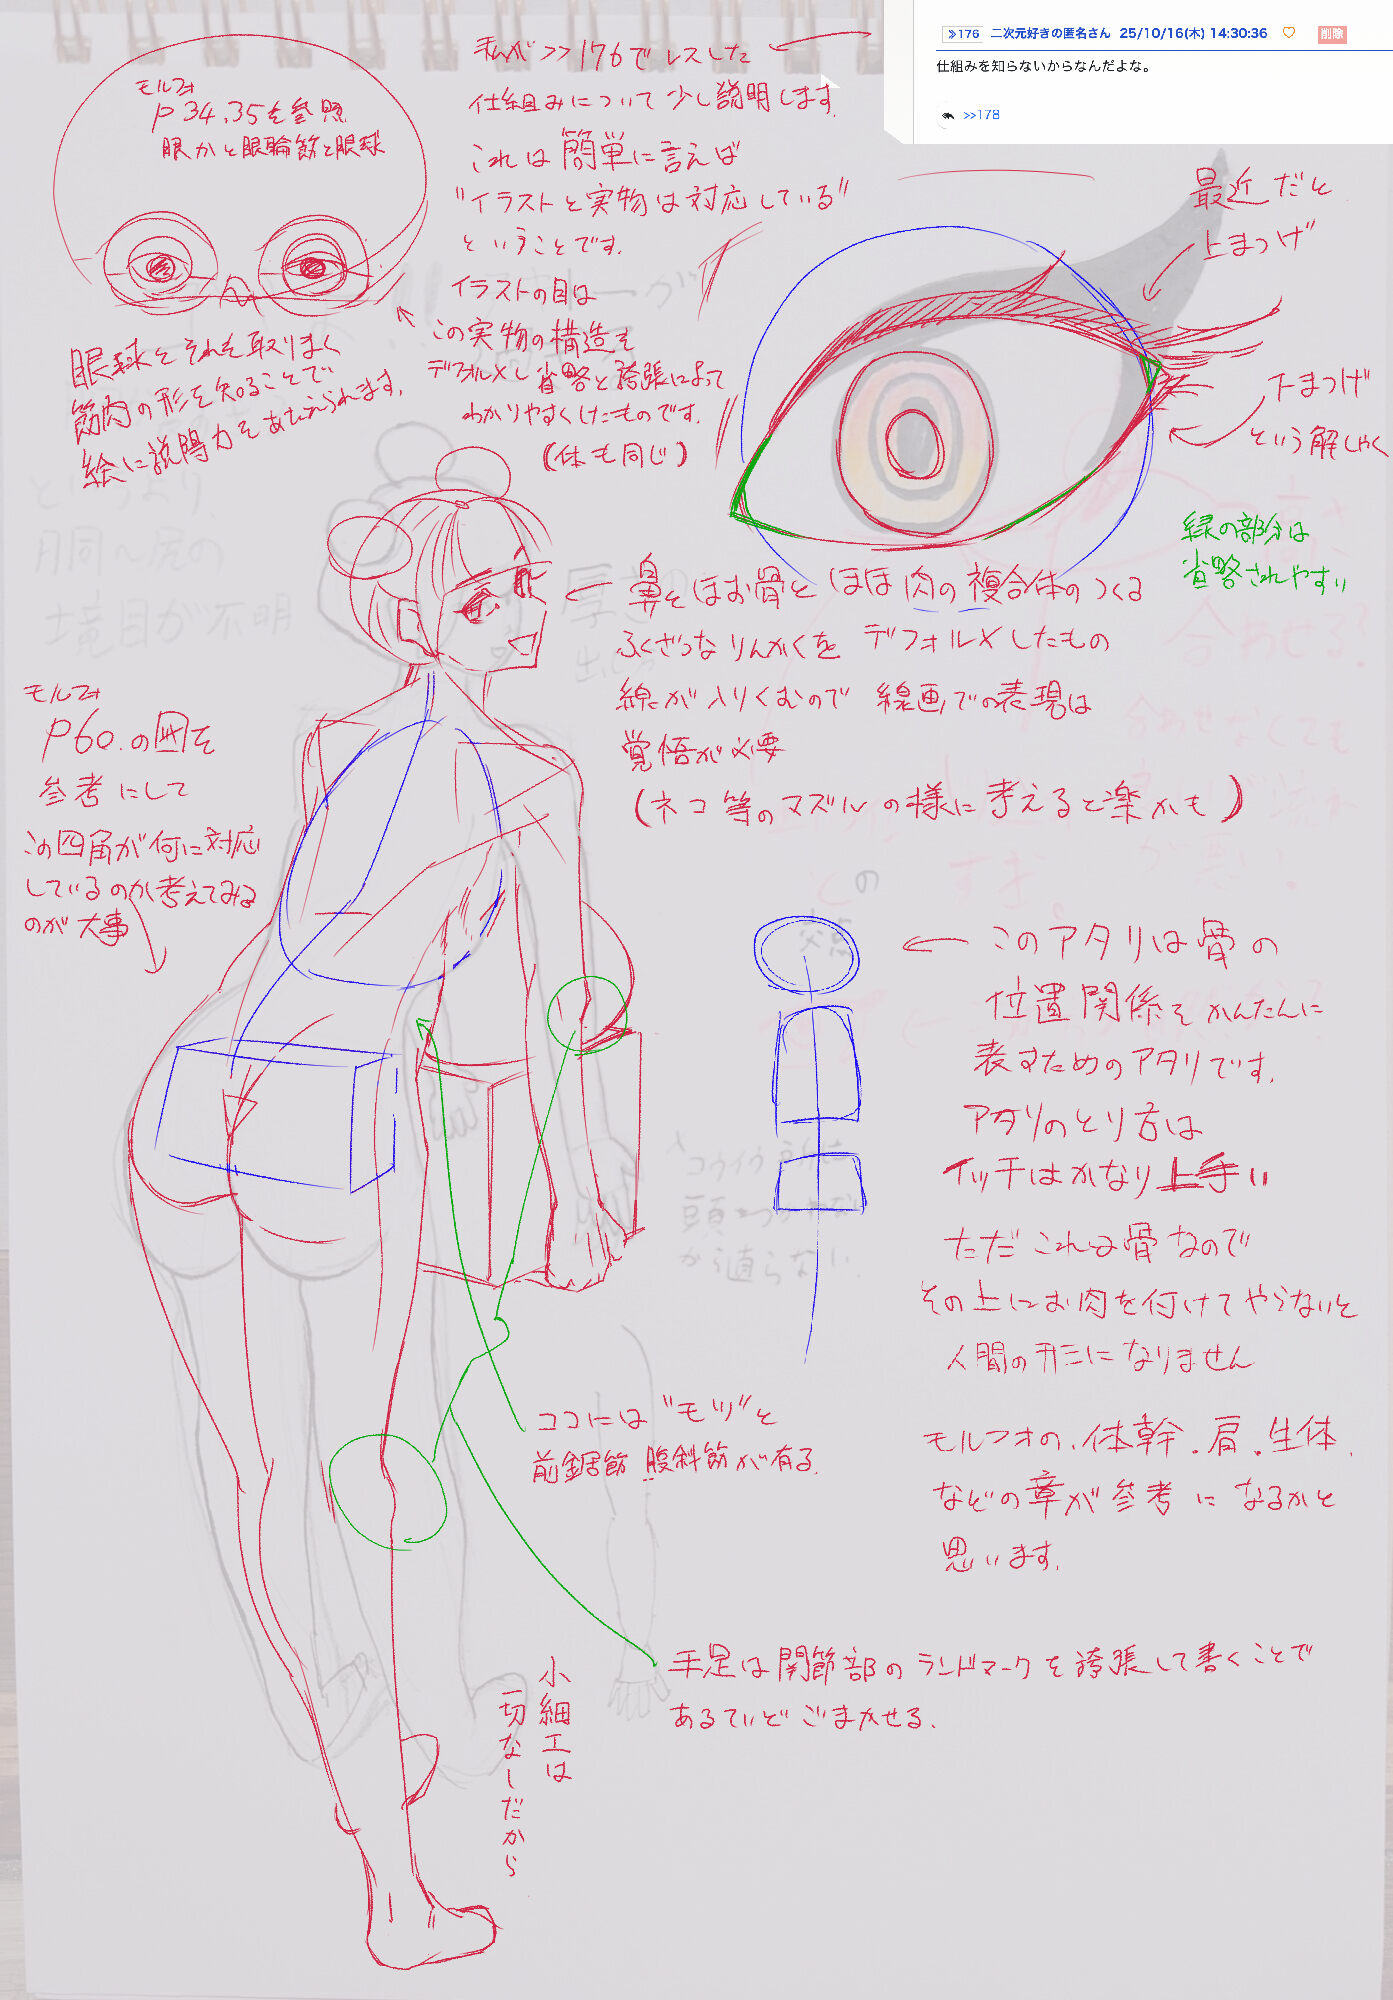 ≫176 二次元好きの匿名さん 25/10/16(木) 14:30:36 ♡ 削除
仕組みを知らないからなんだよな。
>>178
私が>>176でレスした
仕組みについて少し説明します.
これは簡単に言えば
"イラストと実物は対応している"
ということです.
イラストの目は
この実物の構造を
デフォルメし省略と誇張によって
わかりやすくしたものです.
(体も同じ)
モルフォ
P34,35を参照
眼かと眼輪筋と眼球
眼球とそれを取りまく
筋肉の形を知ることで
絵に説得力をあたえられます.
最近だと
上まつげ
下まつげ
という解しゃく
緑の部分は
省略されやすい
鼻をほお骨とほほ肉の複合体のつくる
ふくざつなりんかくをデフォルメしたもの
線が入りくむので 線画での表現は
覚悟が必要
(ネコ等のマズルの様に考えると楽かも)
モルフォ
P60.の図を
参考にして
この四角が何に対応
しているのか考えてみる
のが大事
このアタリは骨の
位置関係をかんたんに
表すためのアタリです.
アタリのとり方は
イッチはかなり上手い
ただこれは骨なので
その上にお肉を付けてやらないと
人間の形になりません
モルフォの.体幹.肩.生体.
などの章が参考になるかと
思います.
ココには"モツ"と
前鋸筋 腹斜筋が有る.
手足は関節部のランドマークを誇張して書くことで
あるていどごまかせる.
小細工は
一切なしだから
胴〜尻の
境目が不明
厚さの
コウイウ
頭
から直らない.
合わせる?
合わせなくても